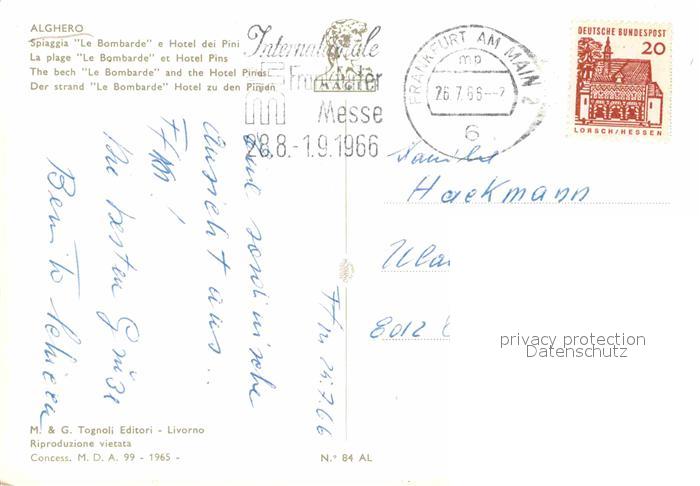 ALGHERO
Spiaggia "Le Bombarde" e Hotel dei Pini
La plage "Le Bombarde" et Hotel Pins
The bech "Le Bombarde" and the Hotel Pines
Der strand "Le Bombarde" Hotel zu den Pinien
Internationale
Frankfurter
Messe
28.8.-1.9.1966
MAGIC
FRANKFURT AM MAIN 2
mp
26.7.66--7
6
DEUTSCHE BUNDESPOST
20
LORSCH/HESSEN
Familie
Haekmann
Ulm
Eine sardinische
Ansicht aus..
Ffm!
Die besten Grüße
Ffm 25.7.66
privacy protection
Datenschutz
M. & G. Tognoli Editori - Livorno
Riproduzione vietata
Concess. M. D. A. 99 - 1965 -
N.° 84 AL